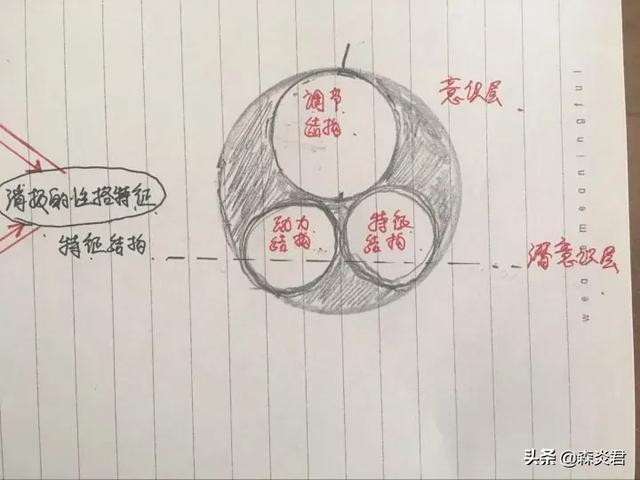 调节
结构
意识层
消损的性格特征
特征结构
动力
结构
特征
结构
潜意识层
头条 @森炎君